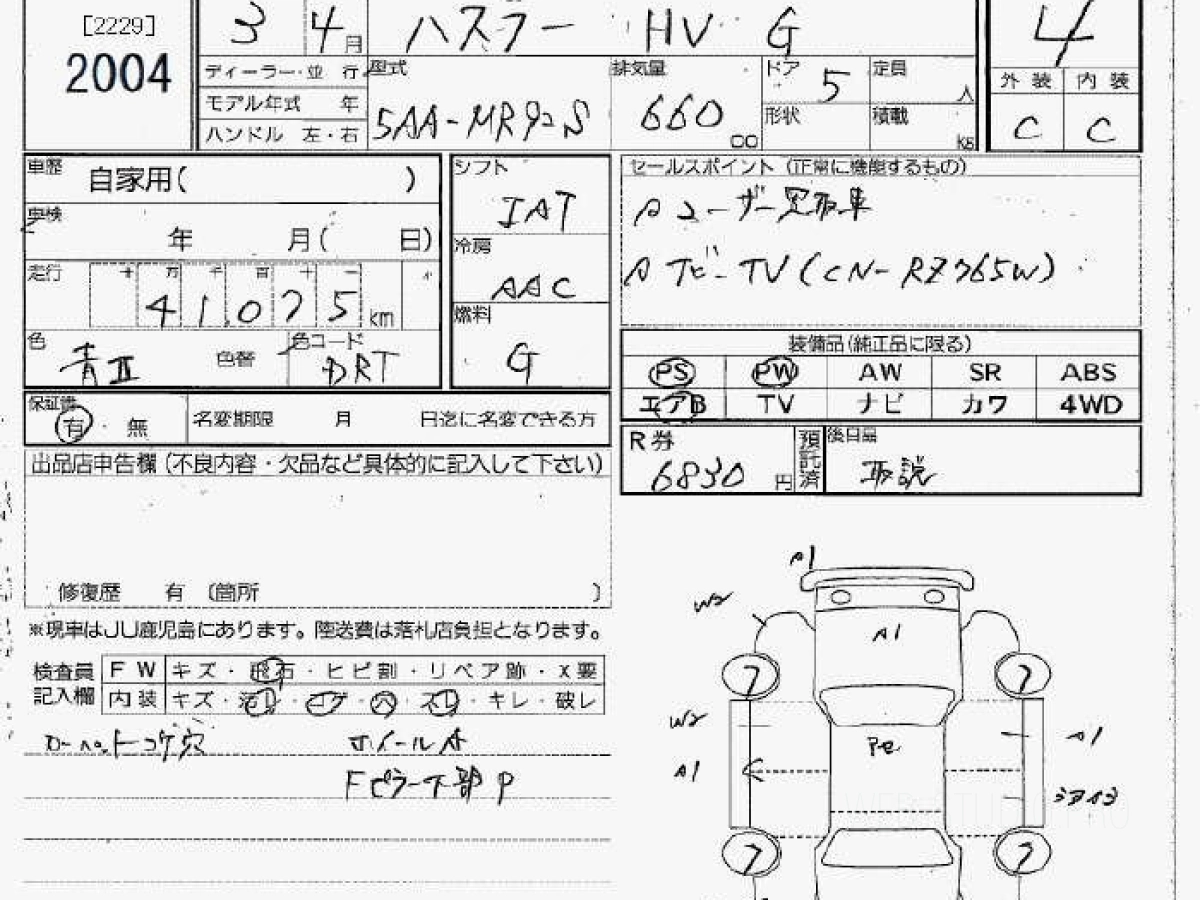 [2229]
2004
3 4月 ハスラー HV G 4
ディーラー・並行 型式 5AA-MR92S 排気量 660 CC ドア 5 定員 人
外装 内装
モデル年式 年
形状 積載 kg
ハンドル 左・右
C C
車歴 自家用( )
シフト IAT
セールスポイント (正常に機能するもの)
Aユーザー買取車
車検 年 月( 日)
冷房 AAC
Aナビ-TV(CN-RZ765W)
走行 十 万 千 百 十 一
41075 km
燃料 G
色 青II 色替 色コード DRT
装備品(純正品に限る)
PS PW AW SR ABS
エアB TV ナビ カワ 4WD
保証書 有・無 名変期限 月 日迄に名変できる方
R券 6830 円 預託済 後日品 取説
出品店申告欄(不良内容・欠品など具体的に記入して下さい)
修復歴 有 〔箇所 〕
※現車はJU鹿児島にあります。陸送費は落札店負担となります。
検査員 FW キズ・飛石・ヒビ割・リペア跡・X要
記入欄 内装 キズ・汚レ・コゲ・穴・スレ・キレ・破レ
コゲ穴 ホイールA
Fピラー下部P
A1
W2
A1
7 7
W2 A1
Pe
A1
7 7